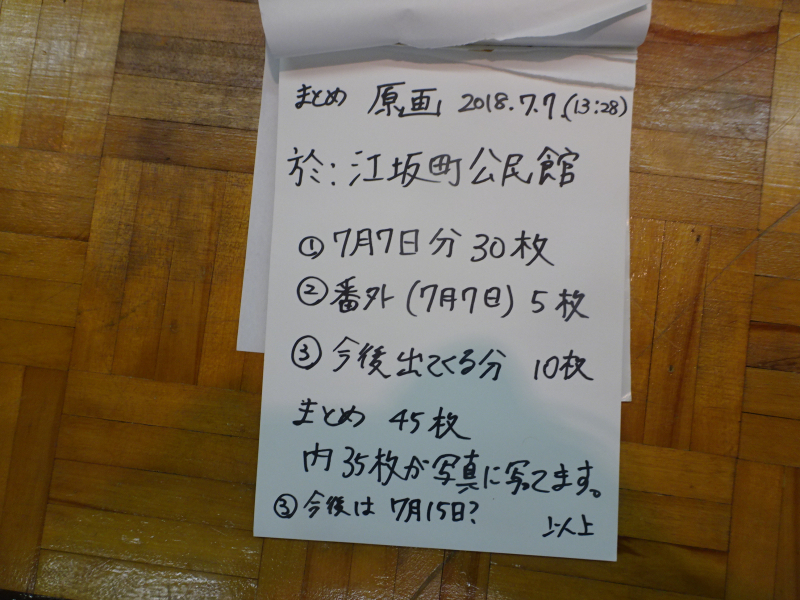 まとめ 原画 2018.7.7.(13:28)
於:江坂町公民館
① 7月7日分 30枚
② 番外(7月7日) 5枚
③ 今後出てくる分 10枚
まとめ 45枚
内35枚が写真に写ってます。
③ 今後は 7月15日?
以上